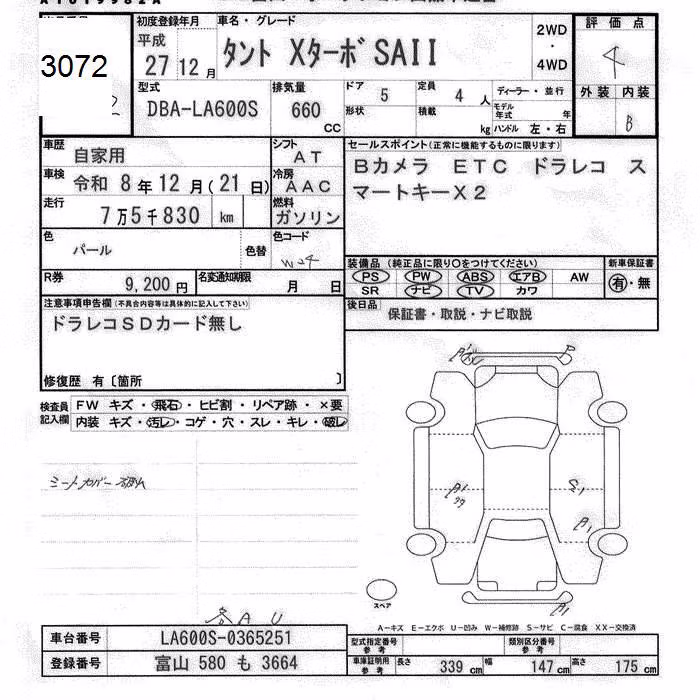 3072
初度登録年月 車名・グレード 2WD 評価点
平成 27 12月 タント XターボSAII ・ 4WD 4
型式 排気量 ドア 5 定員 4 人 ディーラー・並行 外装 内装
DBA-LA600S 660 CC 形状 積載 kg モデル年式 年 ハンドル 左・右 B
車歴 自家用 シフト AT セールスポイント(正常に機能するものに限ります)
車検 令和 8年 12月 (21日) 冷房 AAC Bカメラ ETC ドラレコ ス
走行 7万5千830 km 燃料 ガソリン マートキーX2
色 パール 色替 色コード W24
装備品 (純正品に限り○をつけてください) 新車保証書
R券 9,200円 名変通知期限 月 日 PS PW ABS エアB AW 有・無
SR ナビ TV カワ
注意事項申告欄 (不具合内容等は具体的に記入して下さい) 後日品 保証書・取説・ナビ取説
ドラレコSDカード無し
修復歴 有〔箇所 〕
検査員 FW キズ・飛石・ヒビ割・リペア跡・×要
記入欄 内装 キズ・汚レ・コゲ・穴・スレ・キレ・破レ
A1
A1
スペア
A U
A1
A-キズ E-エクボ U-凹み W-補修跡 S-サビ C-腐食 XX-交換済
車台番号 LA600S-0365251 型式指定番号 参考 類別区分番号 参考
登録番号 富山 580 も 3664 車庫証明用 参考 長さ 339 cm 幅 147 cm 高さ 175 cm